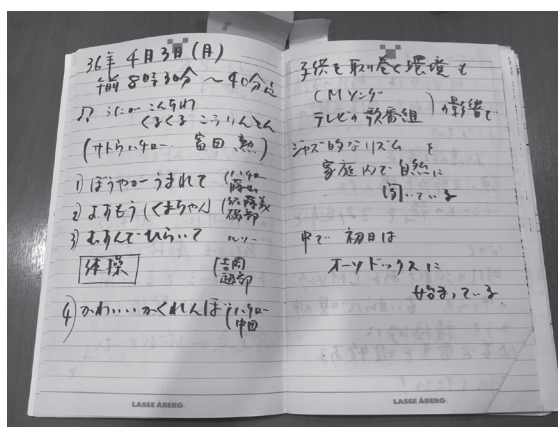 36年 4月3日(月)
午前 8時30分 〜 40分迄
うたのこんすれ
くるくる こうりんとん
(サトウハチロー 富田 勲)
1) ぼうやがうまれて (ハチロー
2) よすもう (くまちゃん) (佐藤義
磯部
3) むすんでひらいて ルソー
体操
4) かわいいかくれんぼ (ハチロー
中田
子供を取り巻く環境も
CMソング
テレビの歌番組) の影響で
ジャズ的なリズムを
家庭内で自然に
聞いている
中で 初日は
オーソドックスに
始まっている
LASSE ÅBERG
LASSE ÅBERG